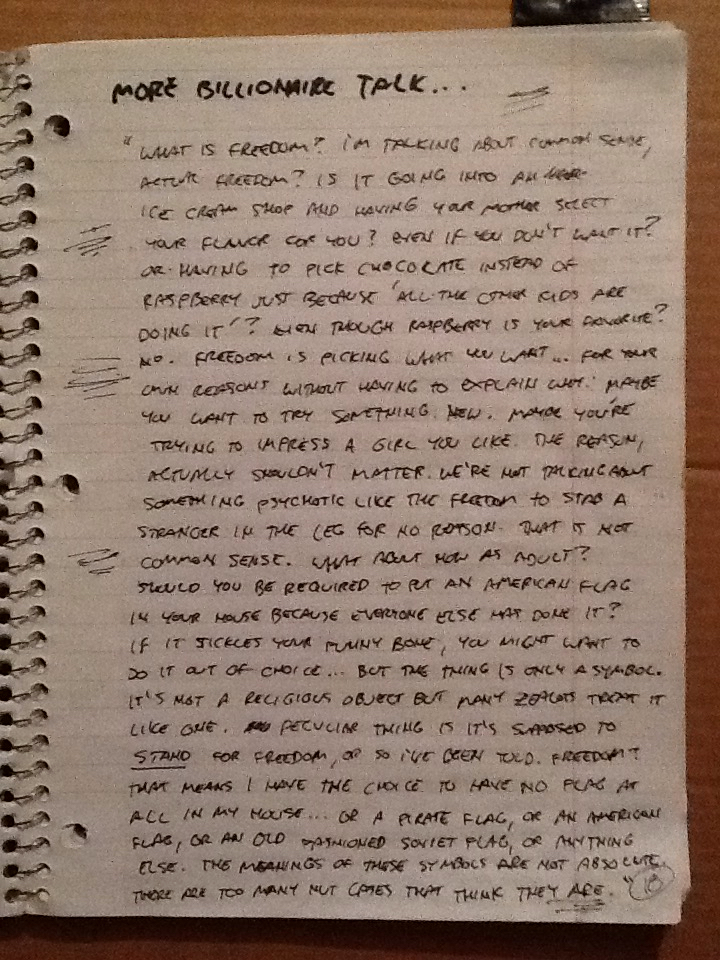 MORE BILLIONAIRE TALK...
"WHAT IS FREEDOM? I'M TALKING ABOUT COMMON SENSE,
ACTUAL FREEDOM? IS IT GOING INTO AN
ICE CREAM SHOP AND HAVING YOUR MOTHER SELECT
YOUR FLAVOR FOR YOU? EVEN IF YOU DON'T WANT IT?
OR HAVING TO PICK CHOCOLATE INSTEAD OF
RASPBERRY JUST BECAUSE 'ALL THE OTHER KIDS ARE
DOING IT'? EVEN THOUGH RASPBERRY IS YOUR FAVORITE?
NO. FREEDOM IS PICKING WHAT YOU WANT... FOR YOUR
OWN REASONS WITHOUT HAVING TO EXPLAIN WHY. MAYBE
YOU WANT TO TRY SOMETHING NEW. MAYBE YOU'RE
TRYING TO IMPRESS A GIRL YOU LIKE. THE REASON,
ACTUALLY SHOULDN'T MATTER. WE'RE NOT TALKING ABOUT
SOMETHING PSYCHOTIC LIKE THE FREEDOM TO STAB A
STRANGER IN THE LEG FOR NO REASON. THAT IS NOT
COMMON SENSE. WHAT ABOUT NOW AS ADULT?
SHOULD YOU BE REQUIRED TO PUT AN AMERICAN FLAG
IN YOUR HOUSE BECAUSE EVERYONE ELSE HAS DONE IT?
IF IT TICKLES YOUR FUNNY BONE, YOU MIGHT WANT TO
DO IT OUT OF CHOICE... BUT THE THING IS ONLY A SYMBOL.
IT'S NOT A RELIGIOUS OBJECT BUT MANY ZEALOTS TREAT IT
LIKE ONE. PECULIAR THING IS IT'S SUPPOSED TO
STAND FOR FREEDOM, OR SO I'VE BEEN TOLD. FREEDOM?
THAT MEANS I HAVE THE CHOICE TO HAVE NO FLAG AT
ALL IN MY HOUSE... OR A PIRATE FLAG, OR AN AMERICAN
FLAG, OR AN OLD FASHIONED SOVIET FLAG, OR ANYTHING
ELSE. THE MEANINGS OF THESE SYMBOLS ARE NOT ABSOLUTE.
THERE ARE TOO MANY NUT CASES THAT THINK THEY ARE." 10